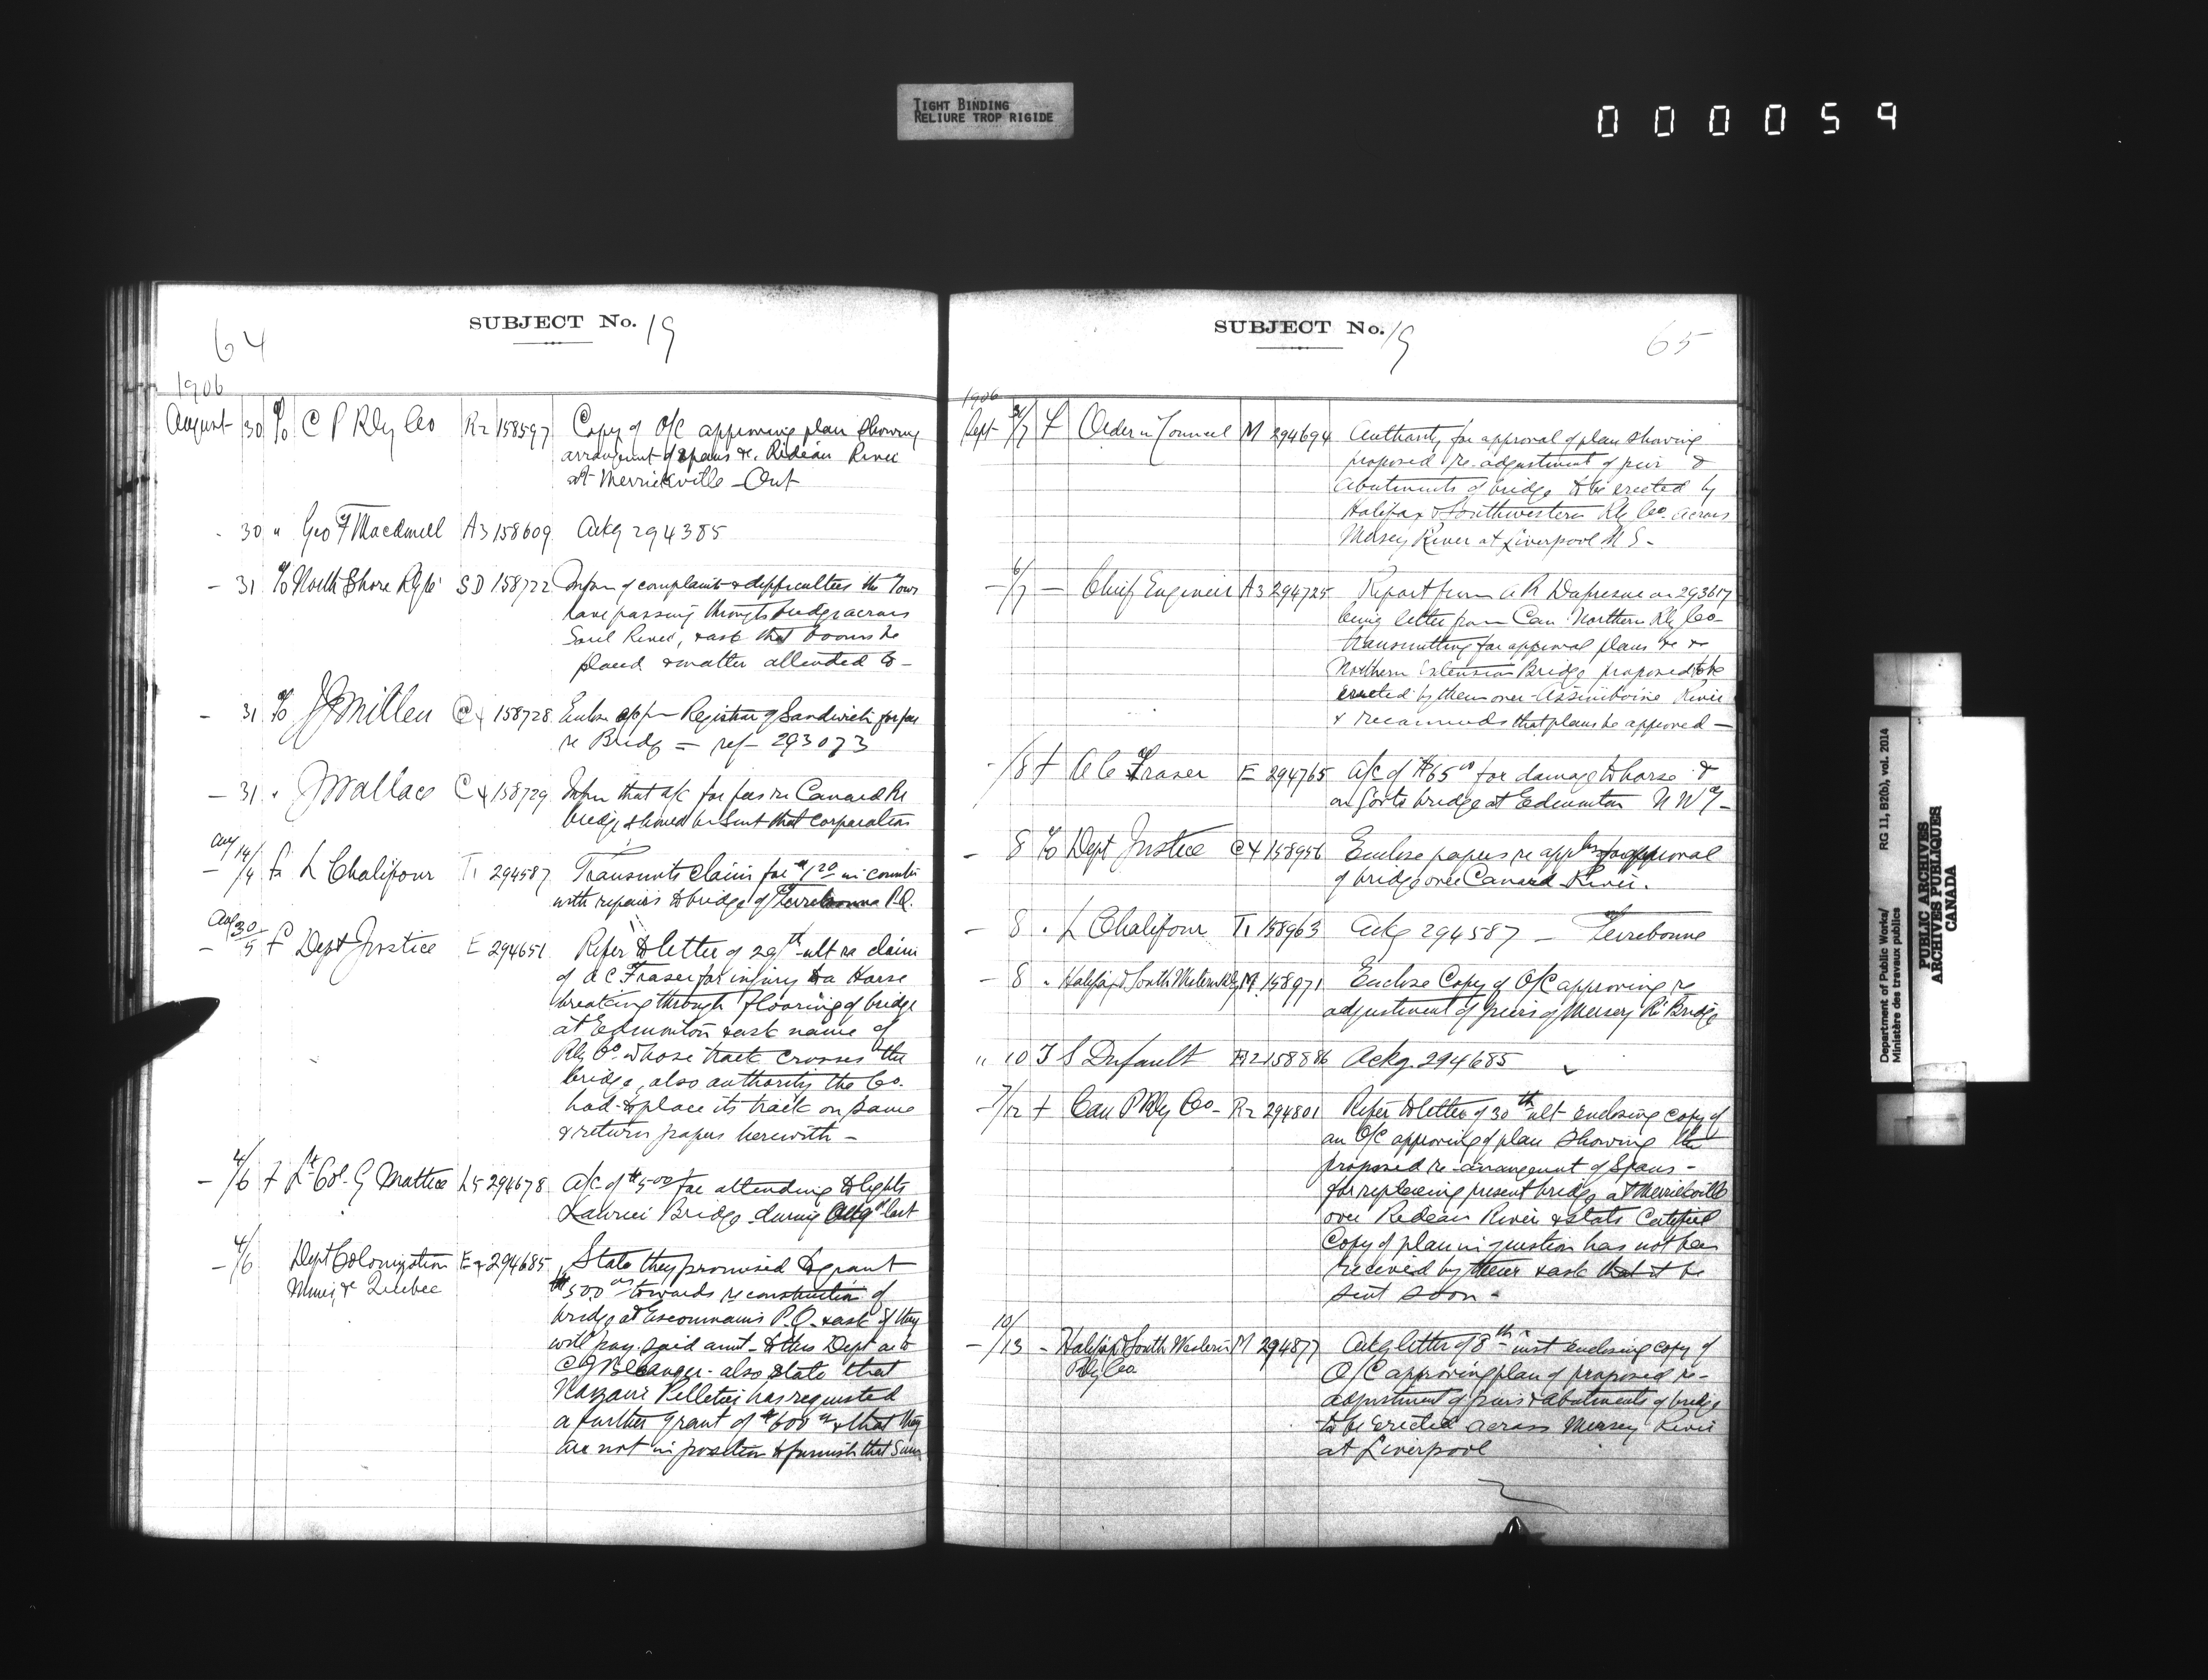 TIGHT BINDING
RELIURE TROP RIGIDE
000059
64
SUBJECT No. 19
1906
August 30 To C P Rly Co R2 158597 Copy of O/C approving plan showing
arrangement of spans &c. Rideau River
at Merrickville - Ont
30 " Geo F Macdonell A3 158609 Ackg 294385
- 31 To North Shore Ry Co SD 158722 Inform of complaint & difficulties the Tow
have passing through bridge across
Sorel River, & ask that booms be
placed & matter attended to -
- 31 To Millen C4 158728 Enclose Registrar of Sandwich for fees
re Bridge = ref - 293073
- 31 " J Wallace C4 158729 Inform that a/c for fees re Canard Rr
bridge should be sent that corporation
Aug 14/
- /4 f L Chalifour T1 294587 Transmits claim for in connection
with repairs to bridge of Terrebonne P.Q.
Aug 30/
- 5 f Dept Justice E 294651 Refer to letter of 29th ult re claim
of A C Fraser for injury to a Horse
breaking through flooring of bridge
at Edmonton & ask name of
Rly Co. whose track crosses the
bridge, also authority the Co.
had to place its track on same
& return papers herewith -
- 4/6 f Lt Col. G Mattice L5 294678 a/c of $5.00 for attending to lights
Bridge during Aug last
- 4/6 Dept Colonization E2 294685 State they promised to grant
Mines, & Quebec $500.00 towards reconstruction of
bridge at Escoumains P.Q. & ask if they
will pay said amt - to this Dept or to
C J Belanger - also state that
Nazaire Pelletier has requested
a further grant of $600.00 & that they
are not in position to furnish that sum
SUBJECT No. 19
65
1906
Sept 31/7 f Order in Council M 294694 Authority for approval of plan showing
proposed re-adjustment of pier &
abutments of bridge to be erected by
Halifax & Southwestern Rly Co. across
Mersey River at Liverpool N S -
- 6/7 - Chief Engineer A3 294725 Report from A R Dufresne on 293617
being letter from Can. Northern Rly Co -
transmitting for approval plans &c re
Northern Extension Bridge proposed to be
erected by them over Assiniboine River
& recommends that plans be approved -
- /8 f A C Fraser E 294765 a/c of $65.00 for damage to horse &
on Govt bridge at Edmonton N W T -
- 8 To Dept Justice C4 158956 Enclose papers re appln for approval
of bridge over Canard River.
- 8 . L Chalifour T1 158963 Ackg 294587 - Terrebonne
- 8 . Halifax & South Western Rly M 158971 Enclose Copy of O/C approving re
adjustment of piers of Mersey Rr Bridge
" 10 T S Dufault E2 158886 Ackg 294685
- 7/12 f Can P Rly Co - R2 294801 Refer to letter of 30th ult enclosing copy of
an O/C approving of plan showing the
proposed re-arrangement of Spans -
for replacing present bridge at Merrickville
over Redeau River & state Certified
Copy of plan in question has not been
received by them & ask that it be
sent soon -
10/
- /13 - Halifax & South Western M 294877 Ackg letter of 8th inst enclosing copy of
Rly Co O/C approving plan of proposed re-
adjustment of piers & abutments of bridge
to be erected across Mersey River
at Liverpool
Department of Public Works/
Ministère des travaux publics
RG 11, B2(b), vol. 2014
PUBLIC ARCHIVES
ARCHIVES PUBLIQUES
CANADA